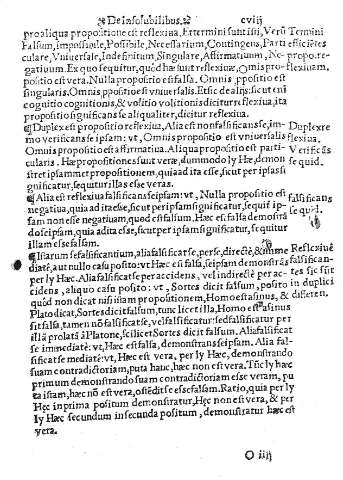 De Insolubilibus. cviij
pro aliqua propositione est reflexiua, Et termini sunt isti, Verū Termini
Falsum, Impossibile, Possibile, Necessarium, Contingens, Parti efficiētes
culare, Vniuersale, Indefinitum, Singulare, Affirmatiuum, Ne- propo. re-
gatiuum. Ex quo sequitur, quòd hæ sunt reflexiuæ, Omnis pro- flexiuam.
positio est vera. Nulla propositio est falsa. Omnis ꝓpositio est
singularis. Omnis ꝓpositio est vniuersalis. Et sic de alijs: sicut eni
cognitio cognitionis, & volitio volitionis dicitur reflexiua, ita
propositio significans se aliqualiter, dicitur reflexiua.
¶ Duplex est propositio reflexiua, Alia est non falsificans se, im- Duplex re
mo verificans se ipsam: vt, Omnis propositio est vniuersalis flexiua.
Omnis propositio est affirmatiua. Aliqua propositio est parti- Verificās
cularis. Hæ propositiones sunt veræ, dummodo ly Hæ, demon se quid.
stret ipsammet propositionem, quia ad ita esse, sicut per ipsas si
gnificatur, sequitur illas esse veras.
¶ Alia est reflexiua falsificans se ipsam: vt, Nulla propositio est falsificans
negatiua, quia ad ita esse, sicut per ipsam significatur, sequit ip- se quid.
sam non esse negatiuam, quod est falsum, Hæc est falsa demonstrā
do se ipsam, quia ad ita esse, sicut per ipsam significatur, sequitur
illam esse falsam.
¶ Istarum se falsificantium, alia falsificat se, per se, directè, & imme Reflexiuę
diatè, aut nullo casu posito: vt Hæc est falsa, se ipsam demonstrās falsifican-
per ly Hæc. Alia falsificat se per accidens, vel indirectè per ac- tes sic sūt
cidens, aliquo casu posito: vt, Sortes dicit falsum, posito in duplici
quòd non dicat nisi istam propositionem, Homo est asinus, & differen.
Plato dicat, Sortes dicit falsum, tunc licet illa, Homo est asinus
sit falsa, tamen nō falsificat se, vel falsificatur: sed falsificatur per
illā prolatā à Platone, scilicet Sortes dicit falsum. Alia falsificat
se immediatè: vt, Hæc est falsa, demonstrans se ipsam. Alia fal-
sificat se mediatè: vt, Hæc est vera, per ly Hæc, demonstrando
suam contradictoriam, puta hanc, hæc non est vera. Tūc ly hæc
primum demonstrando suam contradictoriam esse veram, pu
ta istam, hæc nō est vera, ostēdit se esse falsam. Ratio, quia per ly
Hęc in prima positum demonstratur, Hęc non est vera, & per
ly Hæc secundum in secunda positum, demonstratur hæc est
vera.
O iiij